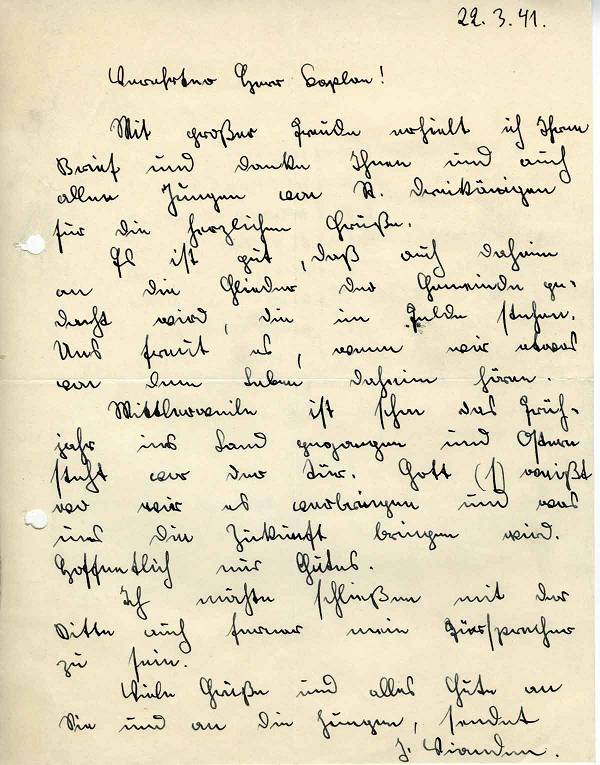 22. 3. 41.
Verehrter Herr Kaplan!
Mit großer Freude erhielt ich Ihren
Brief und danke Ihnen und auch
allen Jungen von St. Dreikönigen
für die herzlichen Grüße.
Es ist gut, daß auch daheim
an die Glieder der Gemeinde ge-
dacht wird, die im Felde stehen.
Uns freut es, wenn wir etwas
von dem Leben daheim hören.
Mittlerweile ist schon das Früh-
jahr ins Land gegangen und Ostern
steht vor der Tür. Gott (1) weißt
wo wir es verbringen und was
uns die Zukunft bringen wird.
Hoffentlich nur Gutes.
Ich möchte schließen mit der
Bitte auch ferner mein Fürsprecher
zu sein.
Viele Grüße und alles Gute an
Sie und an die Jungen, sendet
J. Vianden.